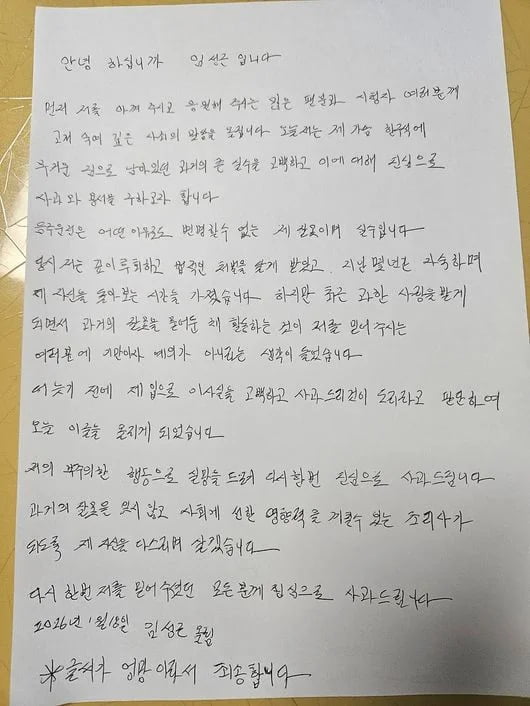 안녕 하십니까 임성근 입니다
먼저 저를 아껴 주시고 응원해 주시는 많은 팬분과 시청자 여러분께
고개 숙여 깊은 사죄의 말씀을 올립니다 오늘 저는 제 가슴 한구석에
무거운 짐으로 남아있던 과거의 큰 실수를 고백하고 이에 대해 진심으로
사과와 용서를 구하고자 합니다
음주운전은 어떤 이유로도 변명할수 없는 제 잘못이며 실수입니다
당시 저는 깊이 후회하고 법적인 처벌을 달게 받았고, 지난 몇년간 자숙하며
제 자신을 돌아보는 시간을 가졌습니다 하지만 최근 과한 사랑을 받게
되면서 과거의 잘못을 묻어둔 채 활동하는 것이 저를 믿어주시는
여러분에 기만이자 예의가 아니라는 생각이 들었습니다
더 늦기 전에 제 입으로 이사실을 고백하고 사과드리것이 도리라고 판단하여
오늘 이글을 올리게 되었습니다
저의 부주의한 행동으로 실망을 드려 다시한번 진심으로 사과드립니다
과거의 잘못을 잊지 않고 사회에 선한 영향력을 끼칠수 있는 조리사가
되도록 제 자신을 다스리며 살겠습니다
다시 한번 저를 믿어주셨던 모든분께 진심으로 사과드립니다
2026년 1월 18일 임성근 올림
※글씨가 엉망이라서 죄송합니다